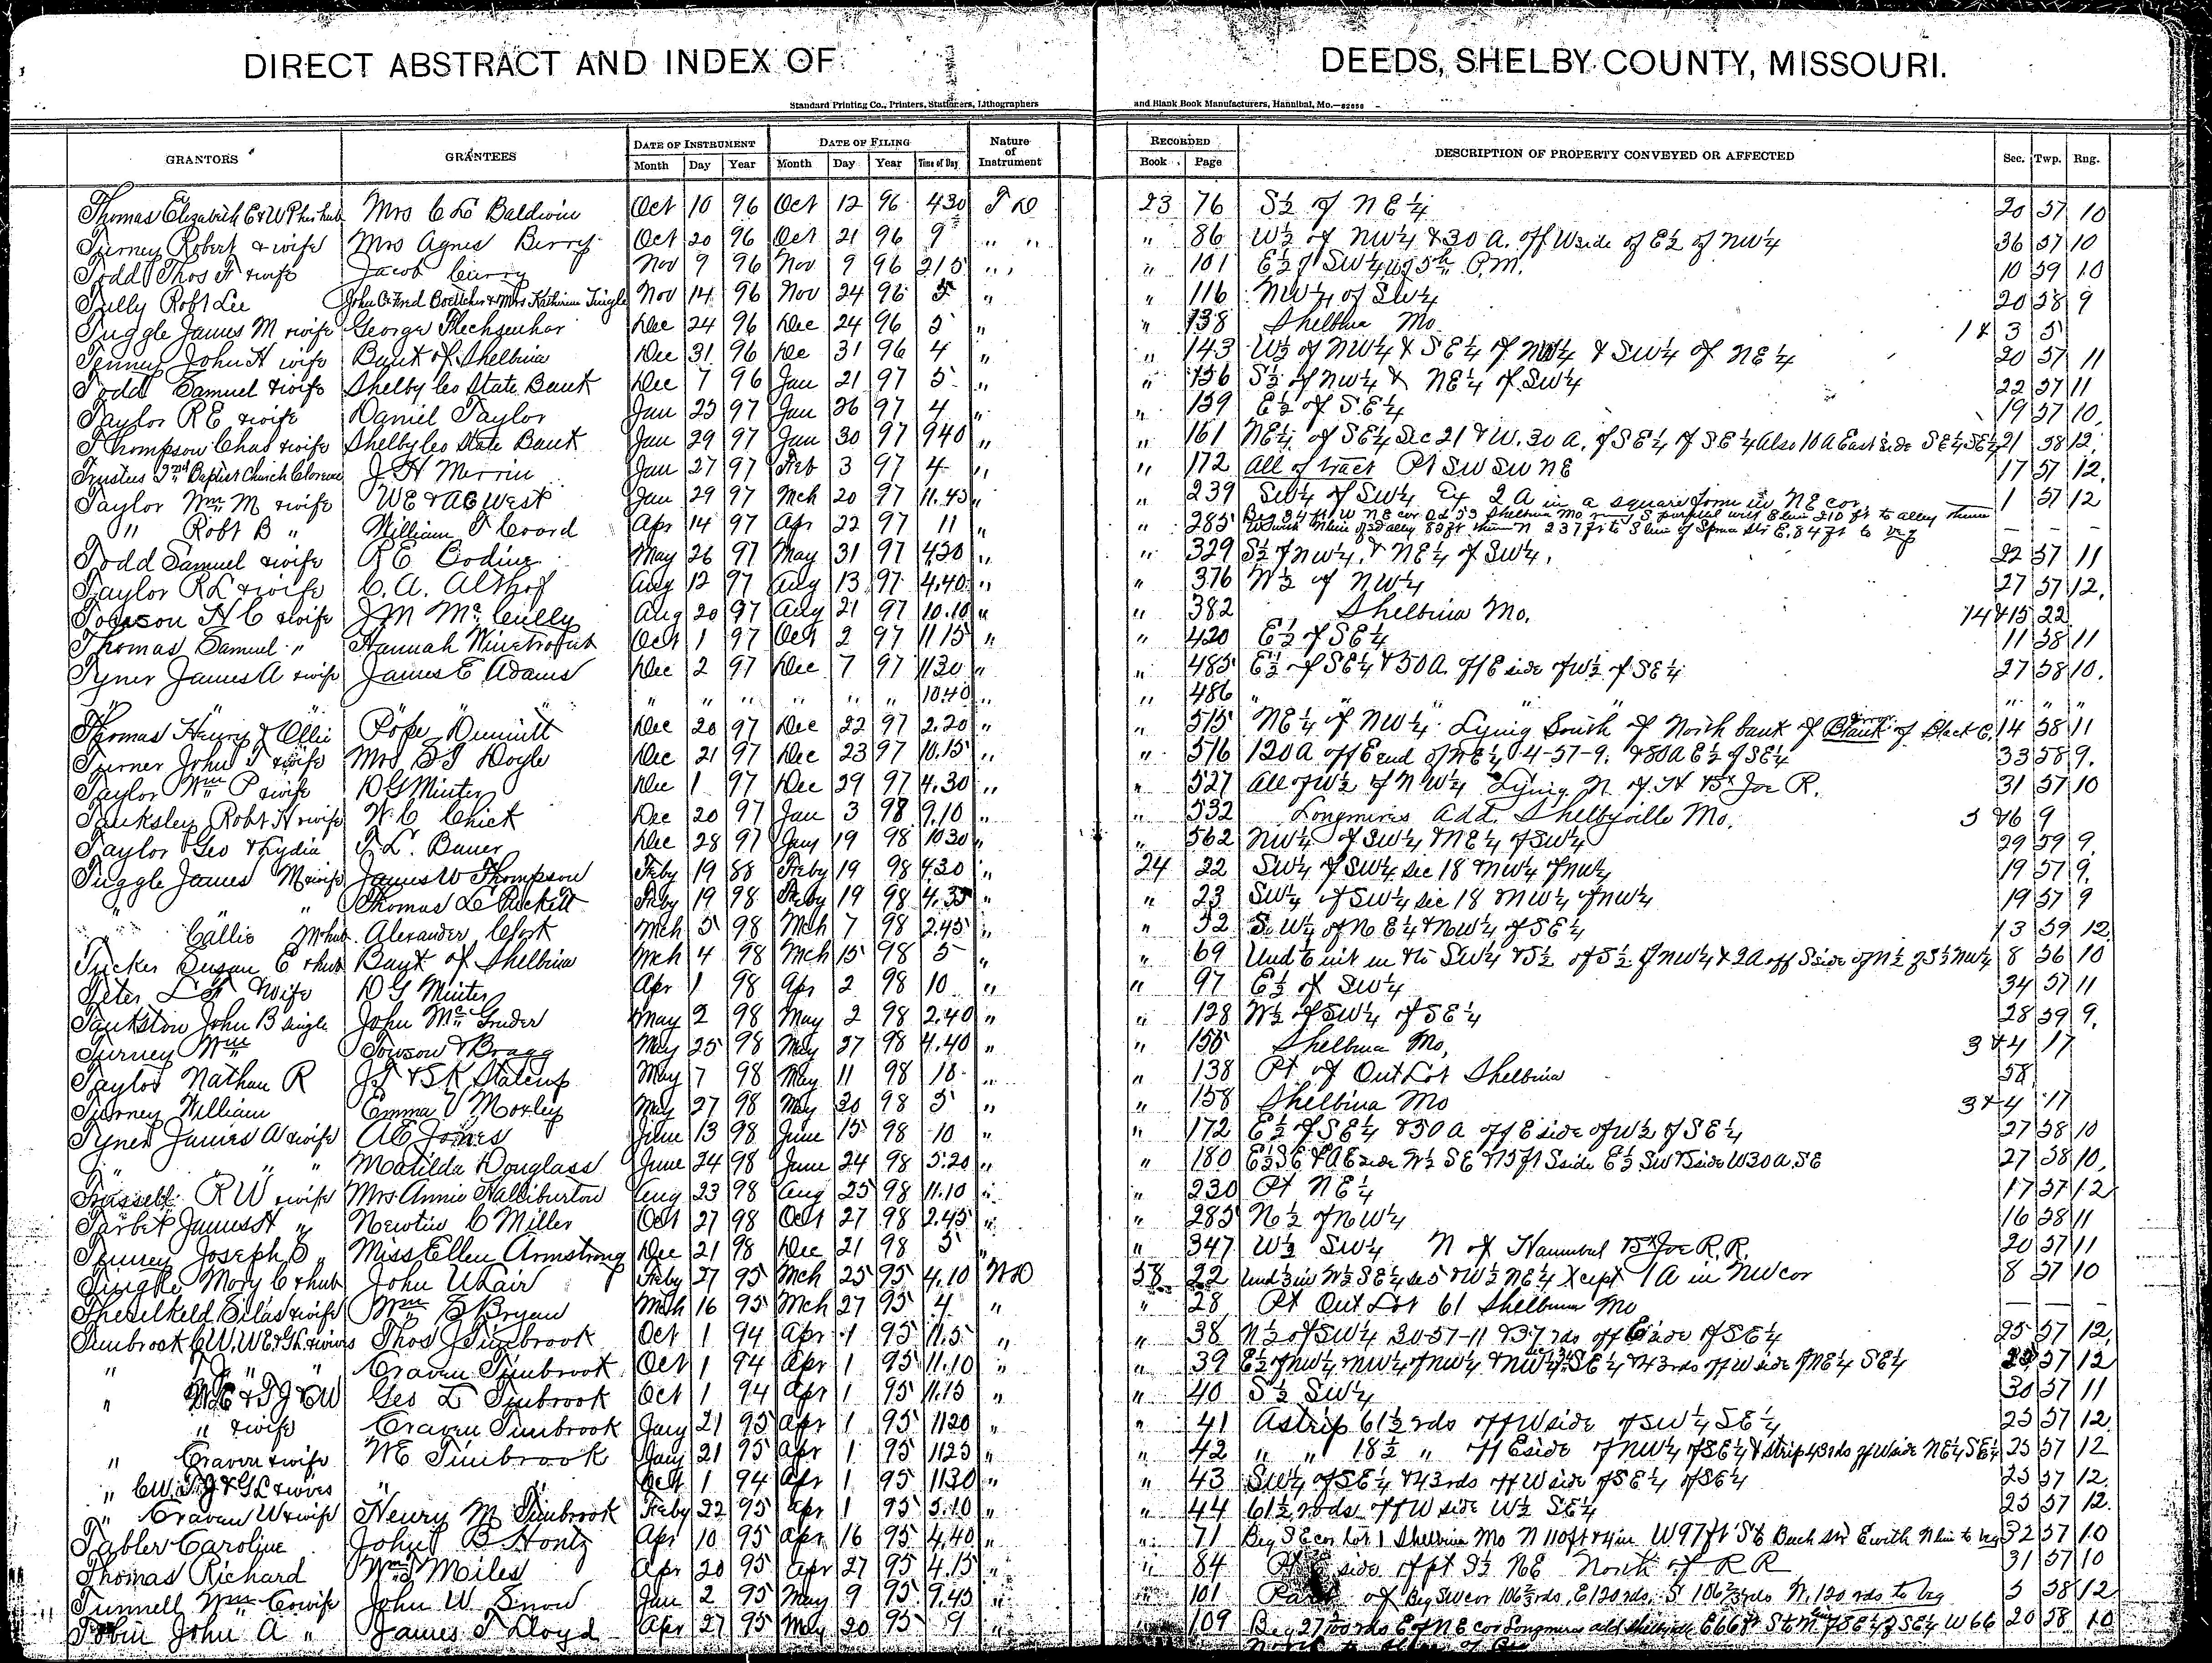 DIRECT ABSTRACT AND INDEX OF DEEDS, SHELBY COUNTY, MISSOURI.
Standard Printing Co., Printers, Stationers, Lithographers and Blank Book Manufacturers, Hannibal, Mo.—82656
GRANTORS GRANTEES DATE OF INSTRUMENT DATE OF FILING Nature of Instrument RECORDED DESCRIPTION OF PROPERTY CONVEYED OR AFFECTED Sec. Twp. Rng.
Month Day Year Month Day Year Time of Day Book Page
Thomas Elizabeth E & W P her hub Mrs C L Baldwin Oct 10 96 Oct 12 96 430 T D 23 76 S½ of NE¼ 20 57 10
Turney Robert & wife Mrs Agnes Berry Oct 20 96 Oct 21 96 9 " " " 86 W½ of NW¼ & 30 A. off W side of E½ of NW¼ 36 57 10
Todd Thos F & wife Jacob Curry Nov 9 96 Nov 9 96 215 " " 101 E½ of SW¼ 5th P.M. 10 59 10
Tully Robt Lee John & Fred Boettcher & Mrs Katherine Tingle Nov 14 96 Nov 24 96 5 " " 116 NW¼ of SW¼ 20 58 9
Tuggle James M & wife George Flechsenhar Dec 24 96 Dec 24 96 5 " " 138 Shelbina Mo 1 & 3 5
Tenney John H wife Bank of Shelbina Dec 31 96 Dec 31 96 4 " " 143 W½ of NW¼ & SE¼ of NW¼ & SW¼ of NE¼ 20 57 11
Todd Samuel & wife Shelby Co State Bank Dec 7 96 Jan 21 97 5 " " 156 S½ of NW¼ & NE¼ of SW¼ 22 57 11
Taylor R E & wife Daniel Taylor Jan 25 97 Jan 26 97 4 " " 159 E½ of S.E¼ 19 57 10
Thompson Chas & wife Shelby Co State Bank Jan 29 97 Jan 30 97 940 " " 161 NE¼ of SE¼ Sec 21 & W. 30 A. of SE¼ of SE¼ Also 10 A East side SE¼ SE¼ 21 58 12
Trustees 2nd Baptist Church Clarence J H Merrin Jan 27 97 Feb 3 97 4 " " 172 All of tract Pt SW SW NE 17 57 12
Taylor Wm M & wife WE & AE West Jan 29 97 Mch 20 97 11.45 " " 239 SW¼ of SW¼ Ex 2 A in a square form in NE cor 1 57 12
" Robt B " William T Coard Apr 14 97 Apr 22 97 11 " " 285 Beg 84 ft W NE cor Od 53 Shelbina Mo S parallel with E line 210 ft to alley thence
W with N line of sd alley 83 ft thence N 237 ft to S line of Spruce Str E. 84 ft to beg — — —
Todd Samuel & wife R E Bodine May 26 97 May 31 97 4.20 " " 329 S½ of NW¼ & NE¼ of SW¼. 22 57 11
Taylor R L & wife C. A. Althof Aug 12 97 Aug 13 97 4.40 " " 376 W½ of NW¼ 27 57 12
Towson H C & wife J M McCully Aug 20 97 Aug 21 97 10.10 " " 382 Shelbina Mo. 14 & 15 22
Thomas Samuel " Hannah Oct 1 97 Oct 2 97 11 15 " " 420 E½ of SE¼ 11 58 11
Tyner James A & wife James E Adams Dec 2 97 Dec 7 97 1130 " " 485 E½ of SE¼ & 50 A. off E side of W½ of SE¼ 27 58 10
" " " " " " " " " 1040 " " 486 " " " " " "
Thomas Henry & Ollie Pope Dimmitt Dec 20 97 Dec 22 97 2.20 " " 515 NE¼ of NW¼ Lying South of North bank of of Black C. 14 58 11
Turner John T & wife Mrs B J Doyle Dec 21 97 Dec 23 97 10.15 " " 516 120 A off E end of NE¼ 4-57-9. & 80 A E½ of SE¼ 33 58 9
Taylor Wm P & wife D G Minter Dec 1 97 Dec 29 97 4.30 " " 527 All of W½ of NW¼ Lying N. of H & St Joe R. 31 57 10
Tanksley Robt H & wife W. C Chick Dec 20 97 Jan 3 98 9.10 " " 532 Longmires Add. Shelbyville Mo. 5 & 6 9
Taylor Geo & Lydia F L. Bauer Dec 28 97 Jany 19 98 1030 " " 562 NW¼ of SW¼ & NE¼ of SW¼ 29 59 9
Tuggle James M & wife James W Thompson Feby 19 88 Feby 19 98 4.30 " 24 22 SW¼ of SW¼ sec 18 & NW¼ of NW¼ 19 57 9
" " Thomas L Puckett Feby 19 98 Feby 19 98 4.35 " " 23 SW¼ of SW¼ sec 18 & NW¼ of NW¼ 19 57 9
" Callie M & hub Alexander Mch 5 98 Mch 7 98 2.45 " " 52 S.W¼ of NE¼ & NW¼ of SE¼ 13 59 12
Tucker Susan E & hub Bank of Shelbina Mch 4 98 Mch 15 98 5 " " 69 Und ⅙ int in the SW¼ & S½ of S½ of NW¼ & 2 A off S side of N½ of S½ NW¼ 8 56 10
Teter L wife D G Minter Apr 1 98 Apr 2 98 10 " " 97 E½ of SW¼ 34 57 11
Tankston John B single John McGruder May 2 98 May 2 98 2.40 " " 128 W½ of SW¼ of SE¼ 28 59 9
Turney Wm Towson & Bragg May 25 98 May 27 98 4.40 " " 155 Shelbina Mo, 3 & 4 17
Taylor Nathan R J T & S K Stalcup May 7 98 May 11 98 10 " " 138 Pt of Out Lot Shelbina 58
Turney William Emma V Moxley May 27 98 May 30 98 5 " " 158 Shelbina Mo 3 & 4 17
Tyner James A & wife A E Jones June 13 98 June 15 98 10 " " 172 E½ of SE¼ & 50 A off E side of W½ of SE¼ 27 58 10
" " " Matilda Douglass June 24 98 June 24 98 5.20 " " 180 E½ SE & A E side W½ SE & 15 ft S side E½ SW & S side W 30 A, SE 27 58 10
Trussell R W & wife Mrs Annie Halliburton Aug 23 98 Aug 25 98 11.10 " " 230 Pt NE¼ 17 57 12
Tarbet James H " Newton C Miller Oct 27 98 Oct 27 98 2.45 " " 285 N½ of NW¼ 16 58 11
Tenney Joseph S " Miss Ellen Armstrong Dec 21 98 Dec 21 98 5 " " 347 W½ SW¼ N of Hannibal & St Joe R.R. 20 57 11
Tingle Mary C & hub John U Lair Feby 27 95 Mch 25 95 4.10 WD 58 22 Und ½ in W½ SE¼ se 5 & W½ NE¼ Xcept 1 A in NW cor 8 57 10
Threlkeld Silas & wife Wm E Bryan Mch 16 95 Mch 27 95 4 " " 28 Pt Out Lot 61 Shelbina Mo — — —
Timbrook CW, WE & GL & wives Thos J Timbrook Oct 1 94 Apr 1 95 11.5 " " 38 N½ of SW¼ 30-57-11 & 37 rds off E side of SE¼ 25 57 12
" T J " " Craven Timbrook Oct 1 94 Apr 1 95 11.10 " " 39 E½ of NW¼ NW¼ of NW¼ & NW¼ SE¼ & 43 rds off W side of NE¼ SE¼ 25 57 12
" W E & T J & C W Geo L Timbrook Oct 1 94 Apr 1 95 11.15 " " 40 S½ SW¼ 30 57 11
" & wife Craven Timbrook Jany 21 95 Apr 1 95 1120 " " 41 A strip 61½ rds off W side of SW¼ SE¼ 25 57 12
" Craven & wife W E Timbrook Jany 21 95 Apr 1 95 1125 " " 42 " " 18½ " off E side of NW¼ of SE¼ & strip 43 rds off W side NE¼ SE¼ 25 57 12
" CW. TJ & GL & wives " " Oct 1 94 Apr 1 95 1130 " " 43 SW¼ of SE¼ & 43 rds off W side of SE¼ of SE¼ 25 57 12
" Craven W & wife Henry M Timbrook Feby 22 95 Apr 1 95 5.10 " " 44 61½ rods off W side W½ SE¼ 25 57 12
Tabler Caroline John B Hontz Apr 10 95 Apr 16 95 4.40 " " 71 Beg SE cor Lot 1 Shelbina Mo N 110 ft & 4 in W 97 ft S to Bach str E with N line to beg 32 57 10
Thomas Richard Wm T Miles Apr 20 95 Apr 27 95 4.15 " " 84 Pt side of pt S½ NE North of R R 31 57 10
Tunnell Wm C & wife John W Snow Jan 2 95 May 9 95 9.45 " " 101 Part of Beg SW cor 106⅔ rds, E 120 rds, S 106⅔ rds W, 120 rds to beg 5 58 12
Tobin John A " James T Lloyd Apr 27 95 May 20 95 9 " " 109 Beg 27 rds E of NE cor Longmires add Shelbyville E 66 ft S to N line of SE¼ of SE¼ W 66 20 58 10